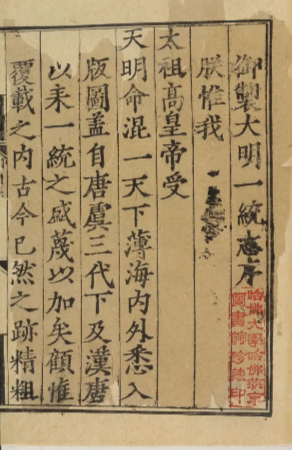 御製大明一統志序
朕惟我
太祖高皇帝受
天明命混一天下薄海内外悉入
版圖盖自唐虞三代下及漢唐
以来一統之盛蔑以加矣顧惟
覆載之内古今已然之跡精粗
哈佛大學哈佛燕京
圖書館珍藏印